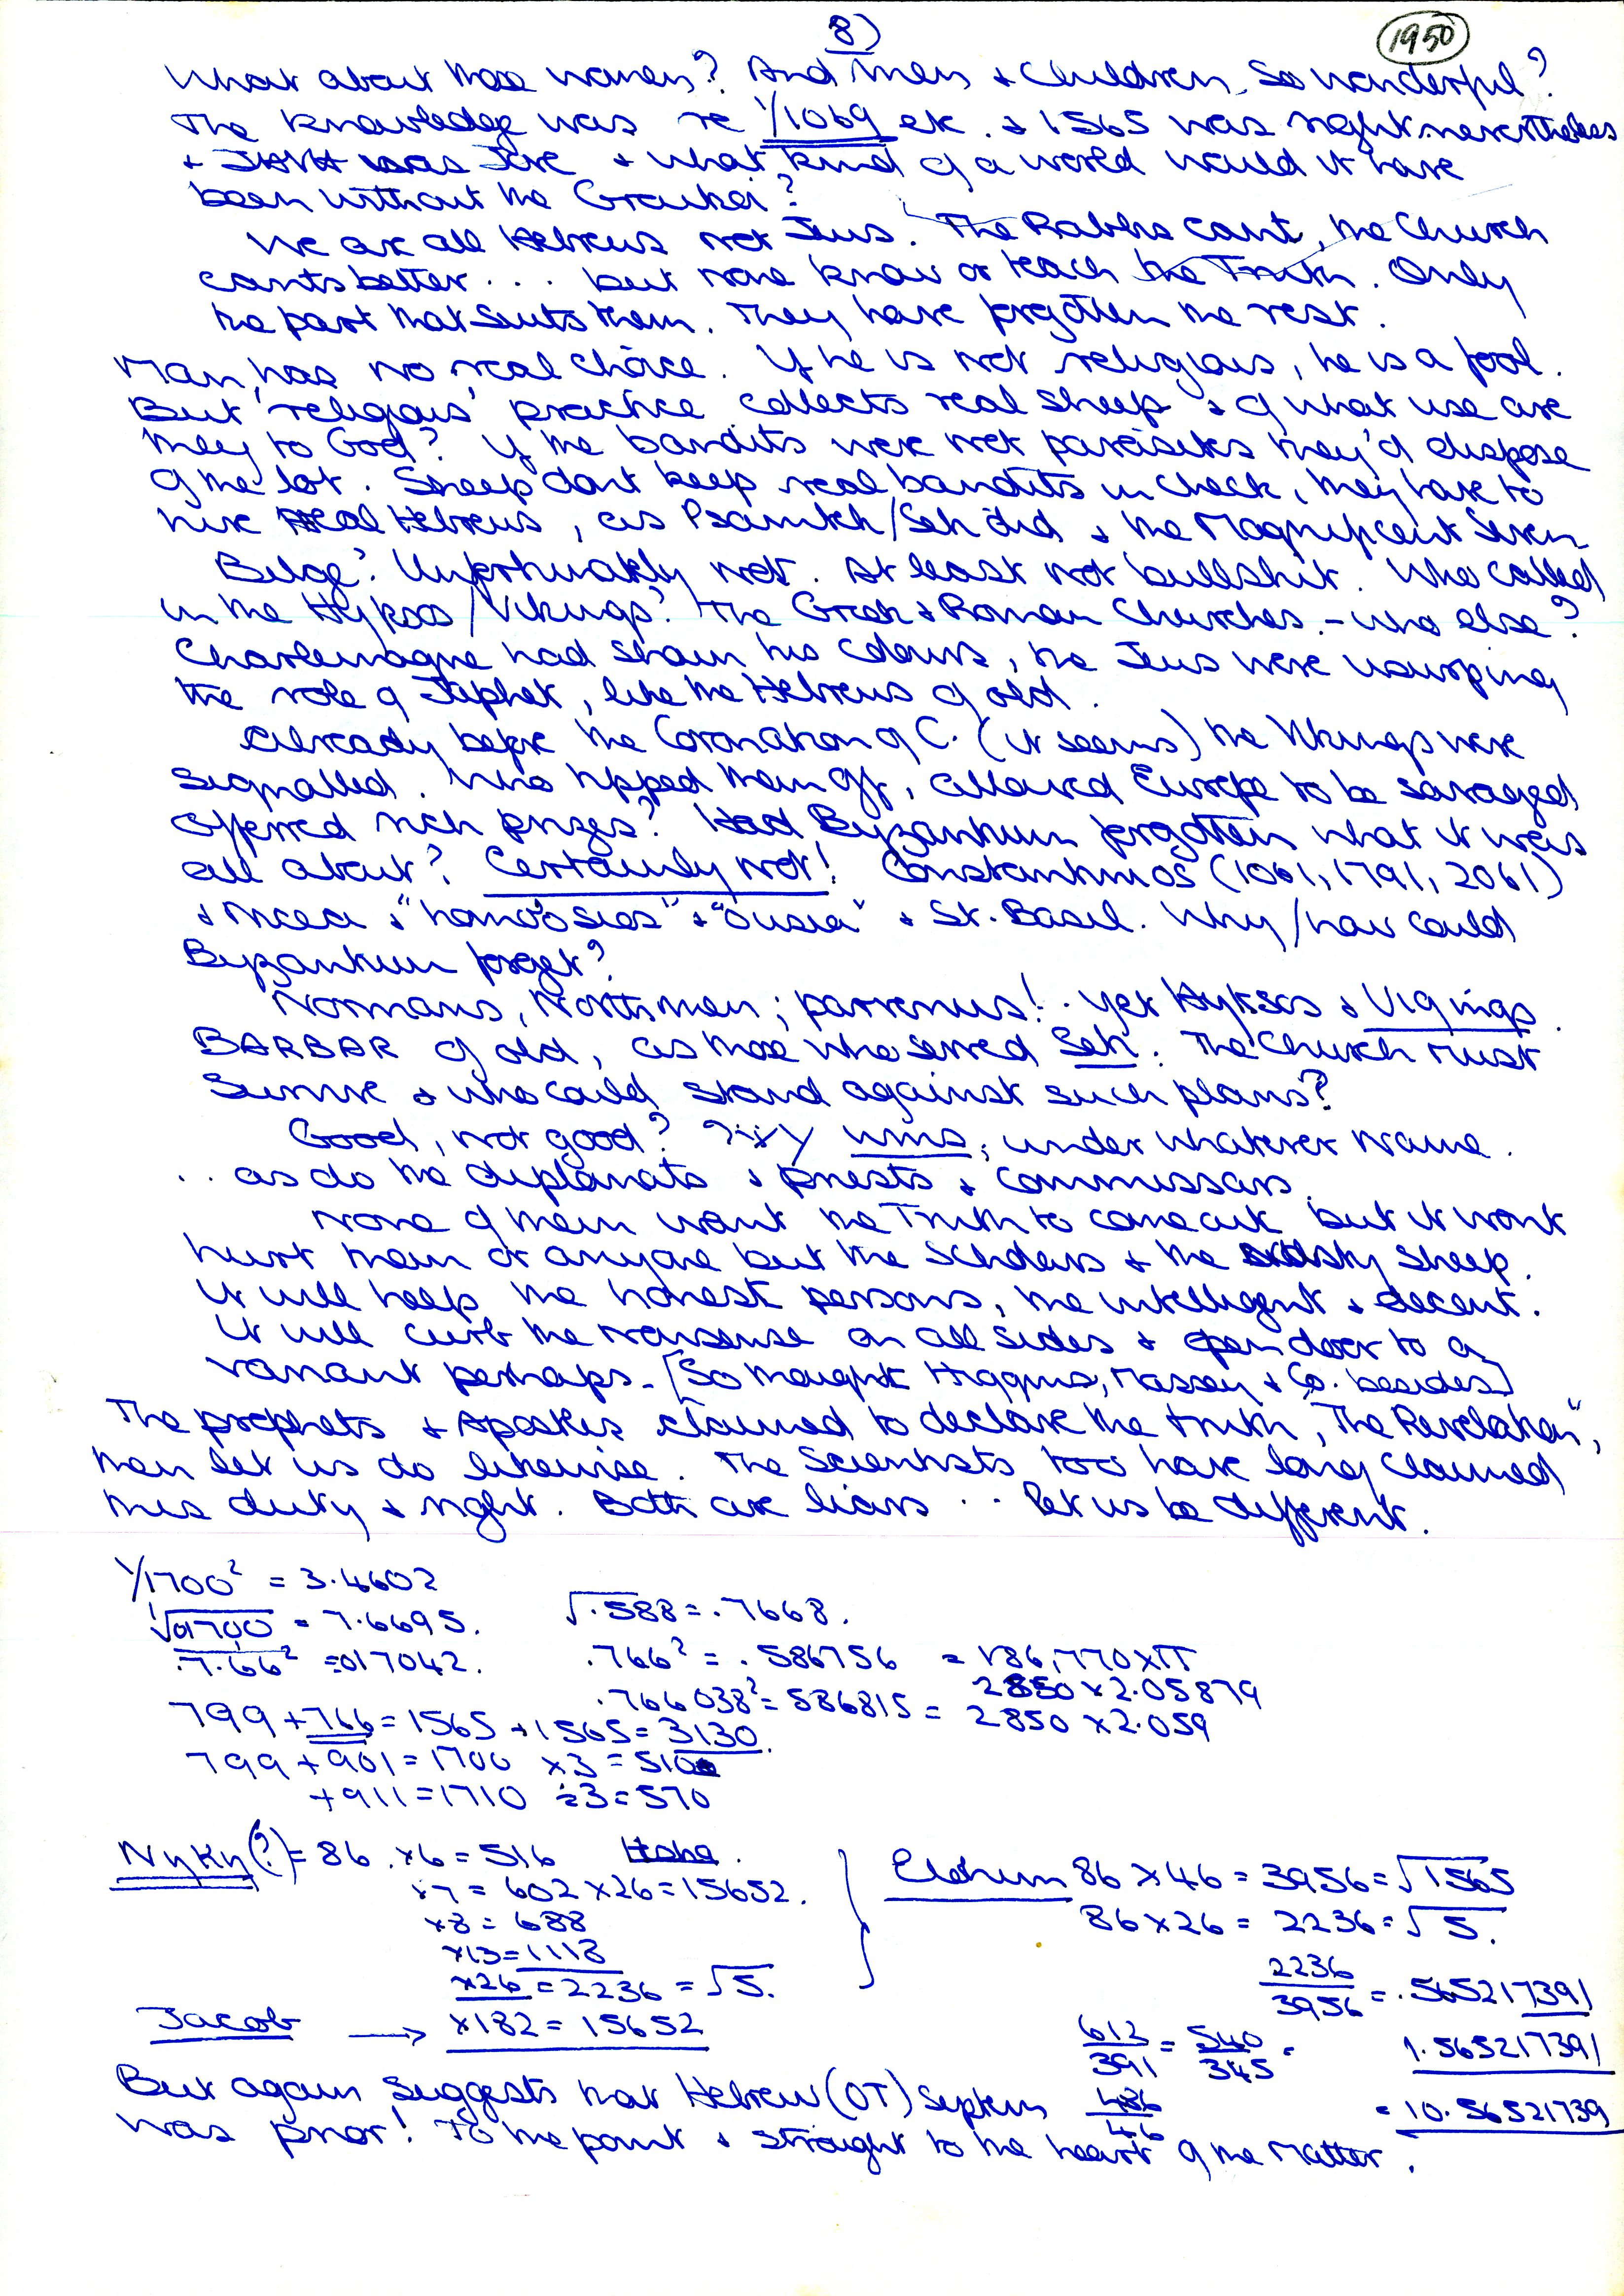 8)
1950
What about those women? And men & children so wonderful?
The knowledge was re 1/1069 etc. & 1565 was right nevertheless
& JHVH was Jove & what kind of a world would it have
been without the Graikoi?
We are all Hebrews not Jews. The Rabbis cant, the Church
cants better ... but none know or teach the Truth. Only
the part that suits them. They have forgotten the rest.
Man has no real choice. If he is not religious, he is a fool.
But 'religious' practice collects real sheep & of what use are
they to God? If the bandits were not parasites they'd dispose
of the lot. Sheep dont keep real bandits in check, they have to
hire real Hebrews, as Psamtek/Seti did & the Magnificent Seven.
Bilge? Unfortunately not. At least not bullshit. Who called
in the Hyksos/Vikings? The Greek & Roman Churches. - who else?
Charlemagne had shown his colours, the Jews were usurping
the role of Japhet, like the Hebrews of old.
Already before the Coronation of C. (it seems) the Vikings were
signalled. Who tipped them off, allowed Europe to be savaged
offered rich prizes? Had Byzantium forgotten what it was
all about? Certainly not! Constantinos (1061, 1791, 2061)
& Nicea & "homoosios" & "ousia" & St. Basil. Why/how could
Byzantium forget?
Normans, Northmen; parvenus! . Yet Hyksos & Vigings.
BARBAR of old, as those who served Seti. The Church must
Survive & who could stand against such plans?
Good, not good? wins, under whatever name.
.. as do the diplomats & priests & commissars.
None of them want the Truth to come out but it wont
hurt them or anyone but the Scholars & the sheep.
It will help the honest persons, the intelligent & decent.
It will curb the nonsense on all sides & open door to a
variant perhaps. [So thought Higgins, Massey & Co. besides]
The prophets & Apostles claimed to declare the truth, "The Revelation",
then let us do likewise. The Scientists too have long claimed
this duty & right. Both are liars .. let us be different.
1/1700² = 3.4602
1/√01700 = 7.6695. √.588 = .7668.
.7.66² = 017042. .766² = .586756 = 186,770 x π
.766038² = 586815 = 2850 x 2.05879
799 + 766 = 1565 + 1565 = 3130. 2850 x 2.059
799 + 901 = 1700 x3 = 5100
+ 911 = 1710 ÷3 = 570
NyKy(?) = 86 . x6 = 516
x7 = 602 x 26 = 15652.
x8 = 688
x13 = 1118
x26 = 2236 = √5.
Jacob → x182 = 15652
Elohim 86 x 46 = 3956 = √1565
86 x 26 = 2236 = √5.
2236/3956 = .565217391
612/391 = 540/345 = 1.565217391
486/46 = 10.56521739
But again suggests that Hebrew (OT) system
was prior! To the point & straight to the heart of the matter.